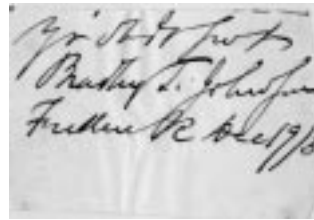 Yr obdt servt
Bradley T. Johnson
Frederick Dec 19/5